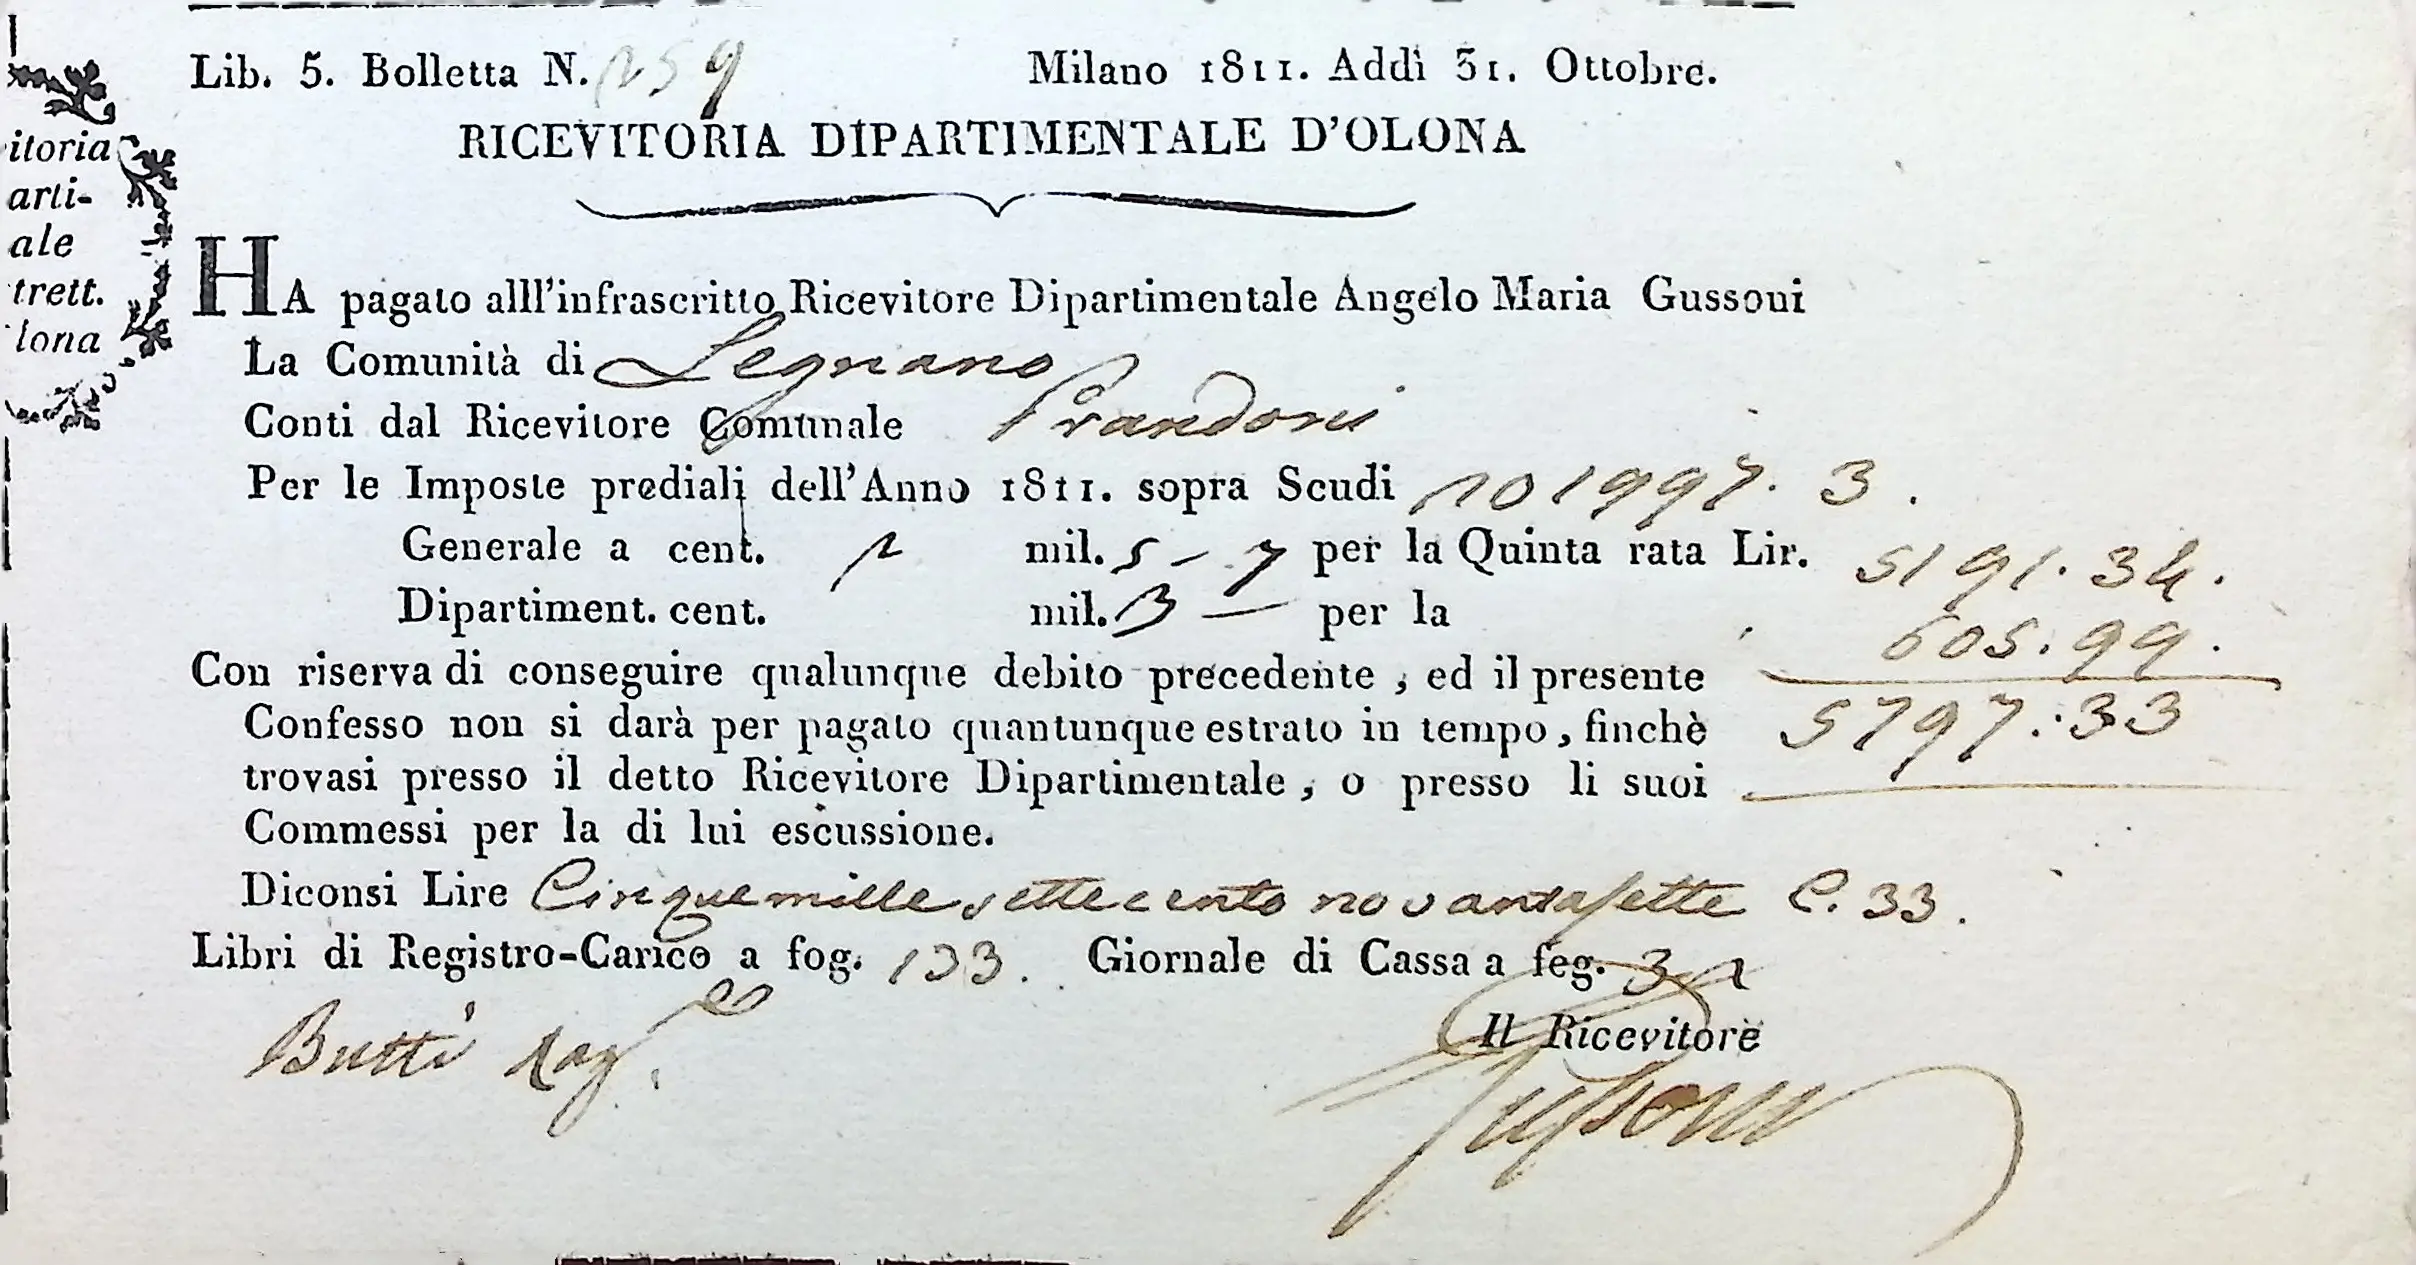 Lib. 5. Bolletta N. 259 Milano 1811. Addì 31. Ottobre.
RICEVITORIA DIPARTIMENTALE D'OLONA
itoria
arti-
ale
trett.
lona
HA pagato alll'infrascritto Ricevitore Dipartimentale Angelo Maria Gussoni
La Comunità di Legnano
Conti dal Ricevitore Comunale Prandoni
Per le Imposte prediali dell'Anno 1811. sopra Scudi 201997. 3.
Generale a cent. 2 mil. 5 - 7 per la Quinta rata Lir. 5191. 34.
Dipartiment. cent. mil. 3 — per la 605. 99.
Con riserva di conseguire qualunque debito precedente, ed il presente
5797. 33
Confesso non si darà per pagato quantunque estrato in tempo, finchè
trovasi presso il detto Ricevitore Dipartimentale, o presso li suoi
Commessi per la di lui escussione.
Diconsi Lire Cinquemille settecento novantasette C. 33.
Libri di Registro-Carico a fog. 133. Giornale di Cassa a feg. 32
Butti Rag.re
Il Ricevitore
Gussoni